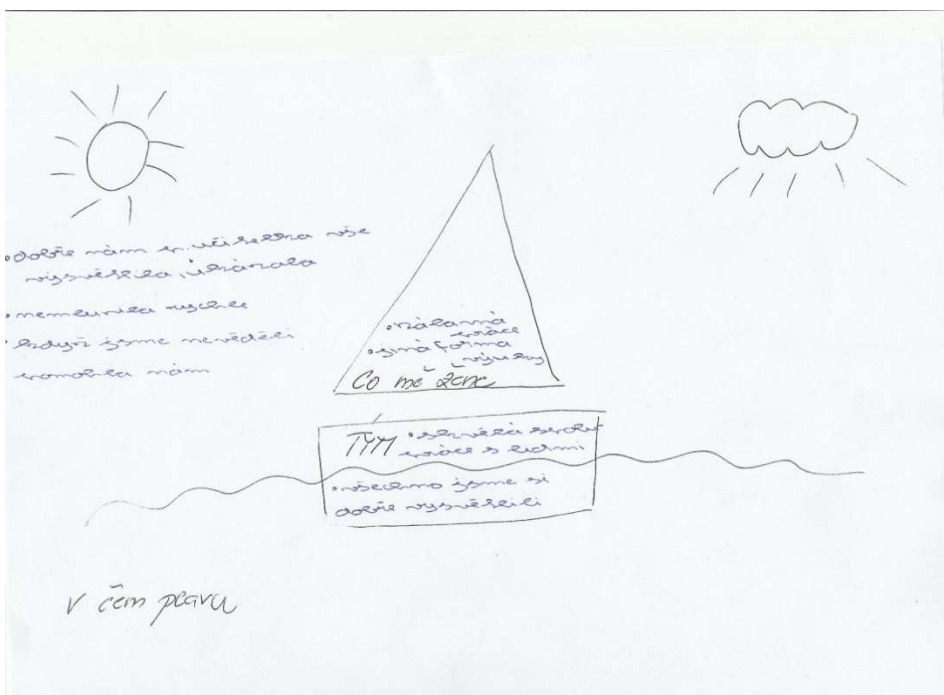 •dobře nám p. učitelka vše
vysvětlila, ukázala
•nemluvila rychle
•když jsme nevěděli
pomohla nám
•zábavná
práce
•jiná forma
výuky
Co mě žene
TÝM •skvělá spolu-
práce s lidmi
•všechno jsme si
dobře vysvětlili
V čem plavu